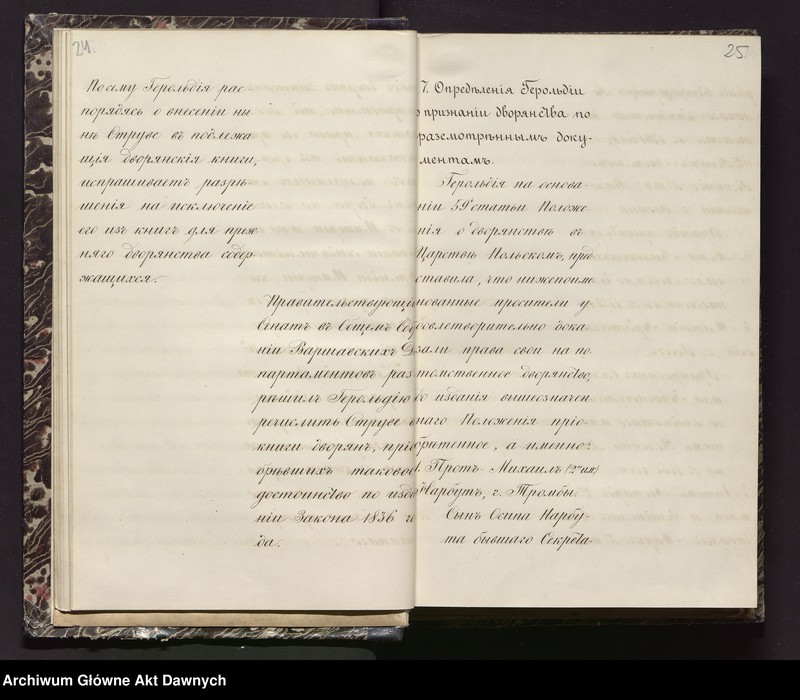 24.
По сему Герольдія рас
порядясь о внесеніи ны
нѣ Струве въ подлежа
щія дворянскія книги,
испрашиваетъ разрѣ
шенія на исключеніе
его изъ книгъ для преж
няго дворянства содер
жащихся.
Правительствующі
Сенатъ въ Общемъ Соб
ніи Варшавскихъ Д
партаментовъ раз
рѣшилъ Герольдію
речислить Струве
книги дворянъ, прі
обрѣвшихъ таково
достоинство по изда
ніи Закона 1836 го
да.
25
7. Опредѣленія Герольдіи
о признаніи дворянства по
разсмотрѣннымъ доку-
ментамъ.
Герольдія на основа
ніи 59й статьи Положе
нія о дворянствѣ въ
Царствѣ Польскомъ, пред
ставила, что нижепоиме
нованные просители у
довлетворительно дока
зали права свои на по
томственное дворянство,
до изданія вышеозначен
наго Положенія пріо-
брѣтенное, а именно:
1. Протъ Михаилъ (2хъ им.)
Нарбутъ, г. Тромбы.
Сынъ Осипа Нарбу-
та бывшаго Секрета-
Archiwum Główne Akt Dawnych